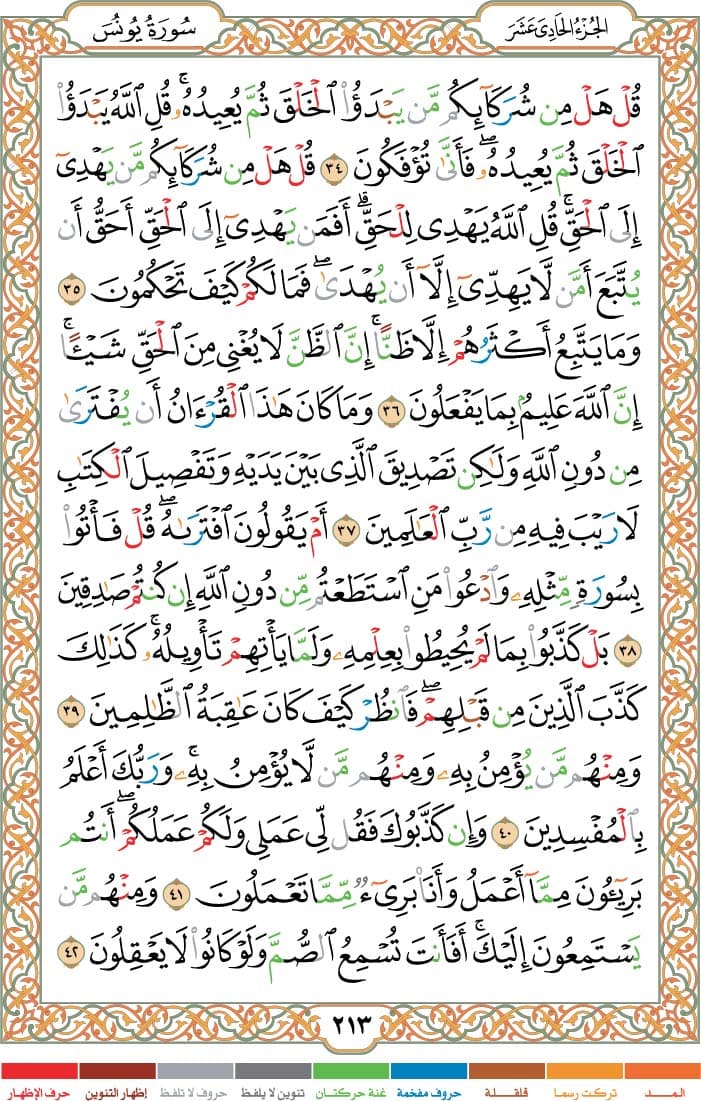 الجُزْءُ الحَادِى عَشَرَ
سُورَةُ يُونُسَ
قُلْ هَلْ مِن شُرَكَآئِكُم مَّن يَبْدَؤُا۟ ٱلْخَلْقَ ثُمَّ يُعِيدُهُۥ ۚ قُلِ ٱللَّهُ يَبْدَؤُا۟
ٱلْخَلْقَ ثُمَّ يُعِيدُهُۥ ۖ فَأَنَّىٰ تُؤْفَكُونَ ٣٤ قُلْ هَلْ مِن شُرَكَآئِكُم مَّن يَهْدِىٓ
إِلَى ٱلْحَقِّ ۚ قُلِ ٱللَّهُ يَهْدِى لِلْحَقِّ ۗ أَفَمَن يَهْدِىٓ إِلَى ٱلْحَقِّ أَحَقُّ أَن
يُتَّبَعَ أَمَّن لَّا يَهِدِّىٓ إِلَّآ أَن يُهْدَىٰ ۖ فَمَا لَكُمْ كَيْفَ تَحْكُمُونَ ٣٥
وَمَا يَتَّبِعُ أَكْثَرُهُمْ إِلَّا ظَنًّا ۚ إِنَّ ٱلظَّنَّ لَا يُغْنِى مِنَ ٱلْحَقِّ شَيْـًٔا ۚ
إِنَّ ٱللَّهَ عَلِيمٌۢ بِمَا يَفْعَلُونَ ٣٦ وَمَا كَانَ هَٰذَا ٱلْقُرْءَانُ أَن يُفْتَرَىٰ
مِن دُونِ ٱللَّهِ وَلَٰكِن تَصْدِيقَ ٱلَّذِى بَيْنَ يَدَيْهِ وَتَفْصِيلَ ٱلْكِتَٰبِ
لَا رَيْبَ فِيهِ مِن رَّبِّ ٱلْعَٰلَمِينَ ٣٧ أَمْ يَقُولُونَ ٱفْتَرَىٰهُ ۖ قُلْ فَأْتُوا۟
بِسُورَةٍ مِّثْلِهِۦ وَٱدْعُوا۟ مَنِ ٱسْتَطَعْتُم مِّن دُونِ ٱللَّهِ إِن كُنتُمْ صَٰدِقِينَ
٣٨ بَلْ كَذَّبُوا۟ بِمَا لَمْ يُحِيطُوا۟ بِعِلْمِهِۦ وَلَمَّا يَأْتِهِمْ تَأْوِيلُهُۥ ۚ كَذَٰلِكَ
كَذَّبَ ٱلَّذِينَ مِن قَبْلِهِمْ ۖ فَٱنظُرْ كَيْفَ كَانَ عَٰقِبَةُ ٱلظَّٰلِمِينَ ٣٩
وَمِنْهُم مَّن يُؤْمِنُ بِهِۦ وَمِنْهُم مَّن لَّا يُؤْمِنُ بِهِۦ ۚ وَرَبُّكَ أَعْلَمُ
بِٱلْمُفْسِدِينَ ٤٠ وَإِن كَذَّبُوكَ فَقُل لِّى عَمَلِى وَلَكُمْ عَمَلُكُمْ ۖ أَنتُم
بَرِيٓـُٔونَ مِمَّآ أَعْمَلُ وَأَنَا۠ بَرِىٓءٌ مِّمَّا تَعْمَلُونَ ٤١ وَمِنْهُم مَّن
يَسْتَمِعُونَ إِلَيْكَ ۚ أَفَأَنتَ تُسْمِعُ ٱلصُّمَّ وَلَوْ كَانُوا۟ لَا يَعْقِلُونَ ٤٢
٢١٣
المــد تركت رسما قلقلة حروف مفخمة غنة حركتان تنوين لا يلفظ حروف لا تلفظ إظهار التنوين حرف الإظهار